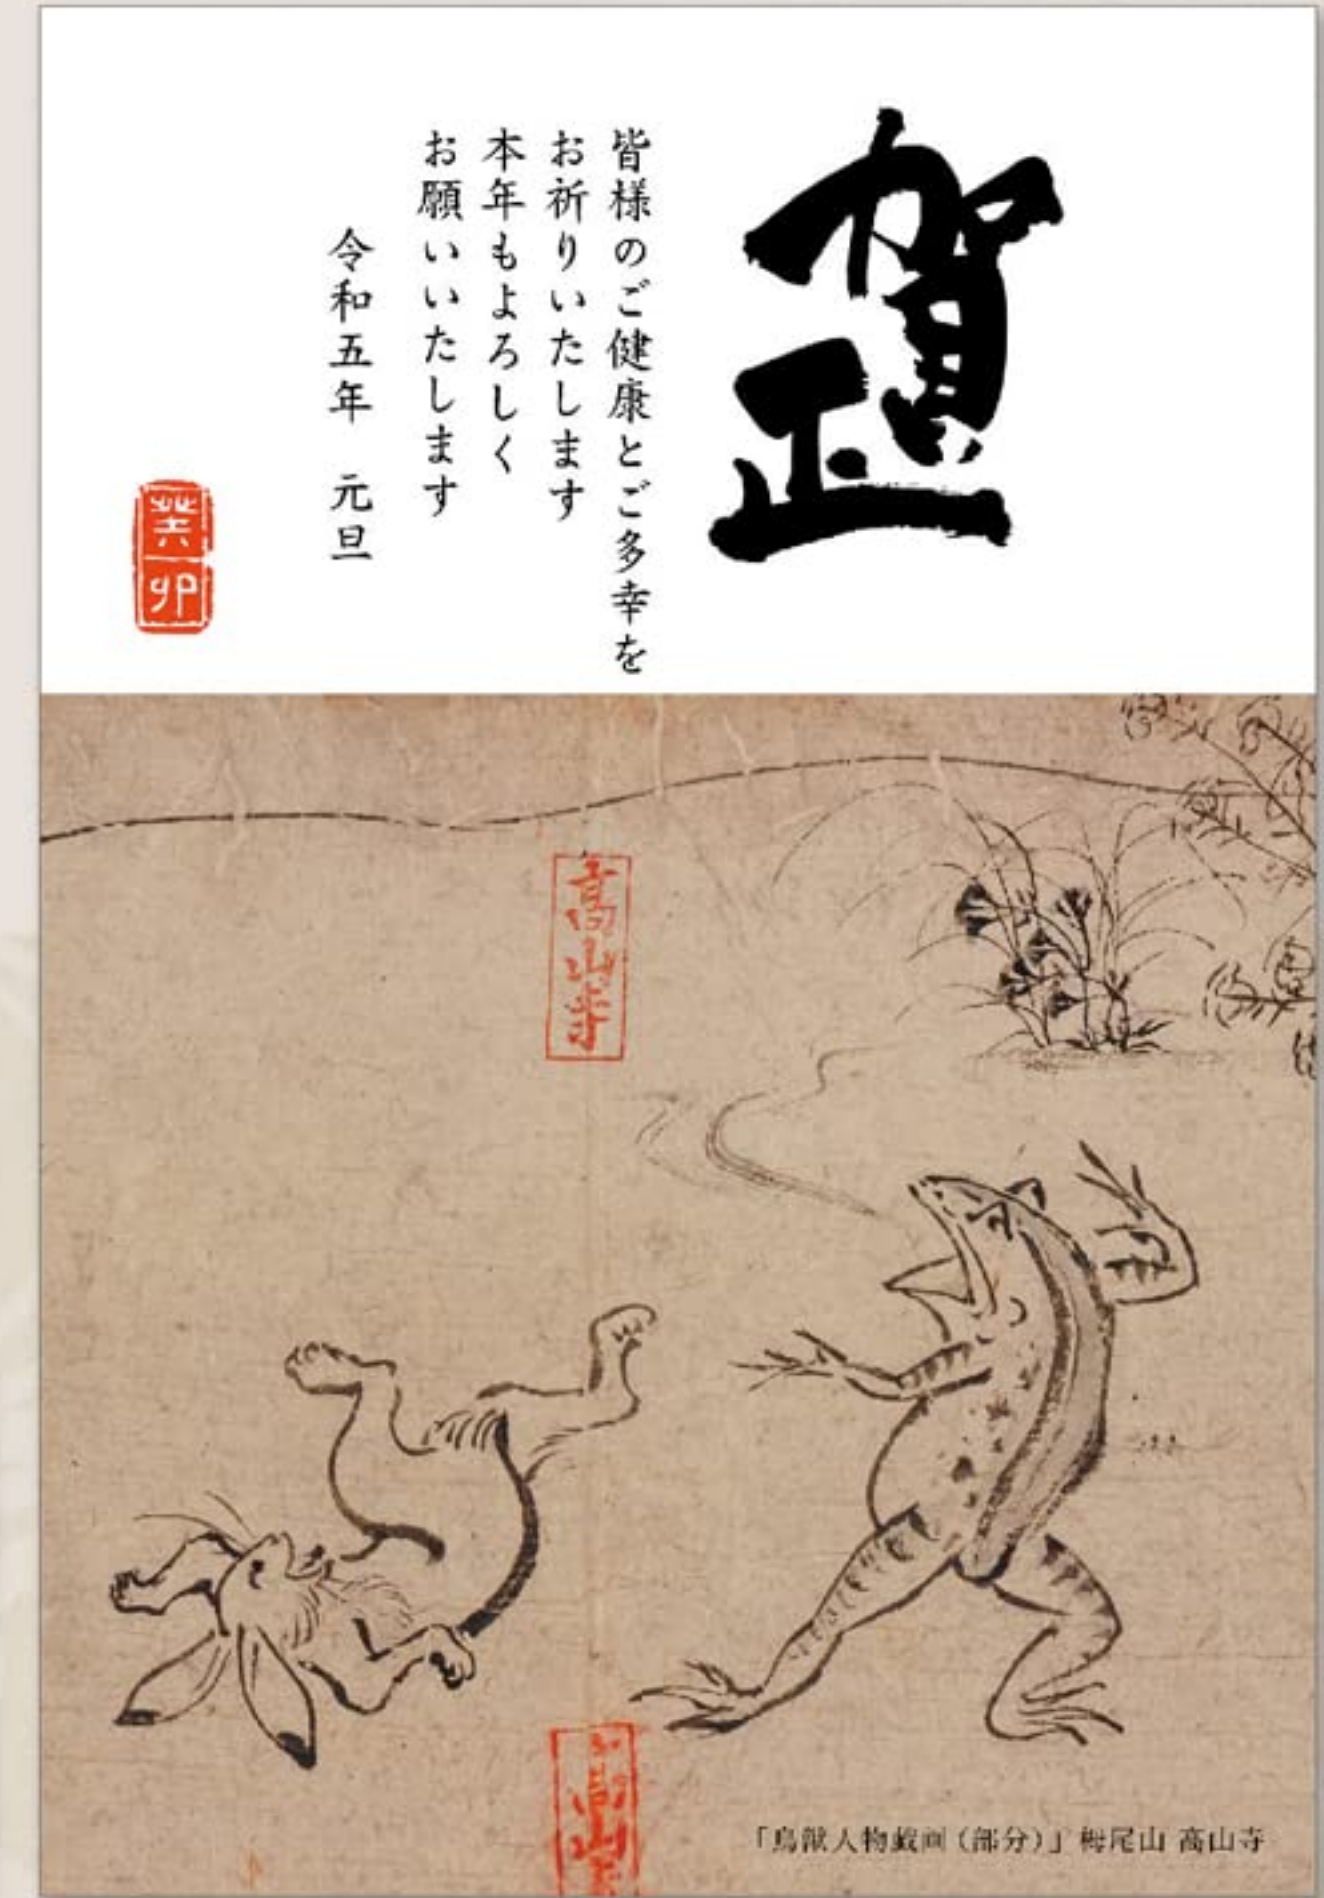 賀正
皆様のご健康とご多幸を
お祈りいたします
本年もよろしく
お願いいたします
令和五年 元旦
癸卯
高山寺
高山寺
「鳥獣人物戯画(部分)」栂尾山 高山寺